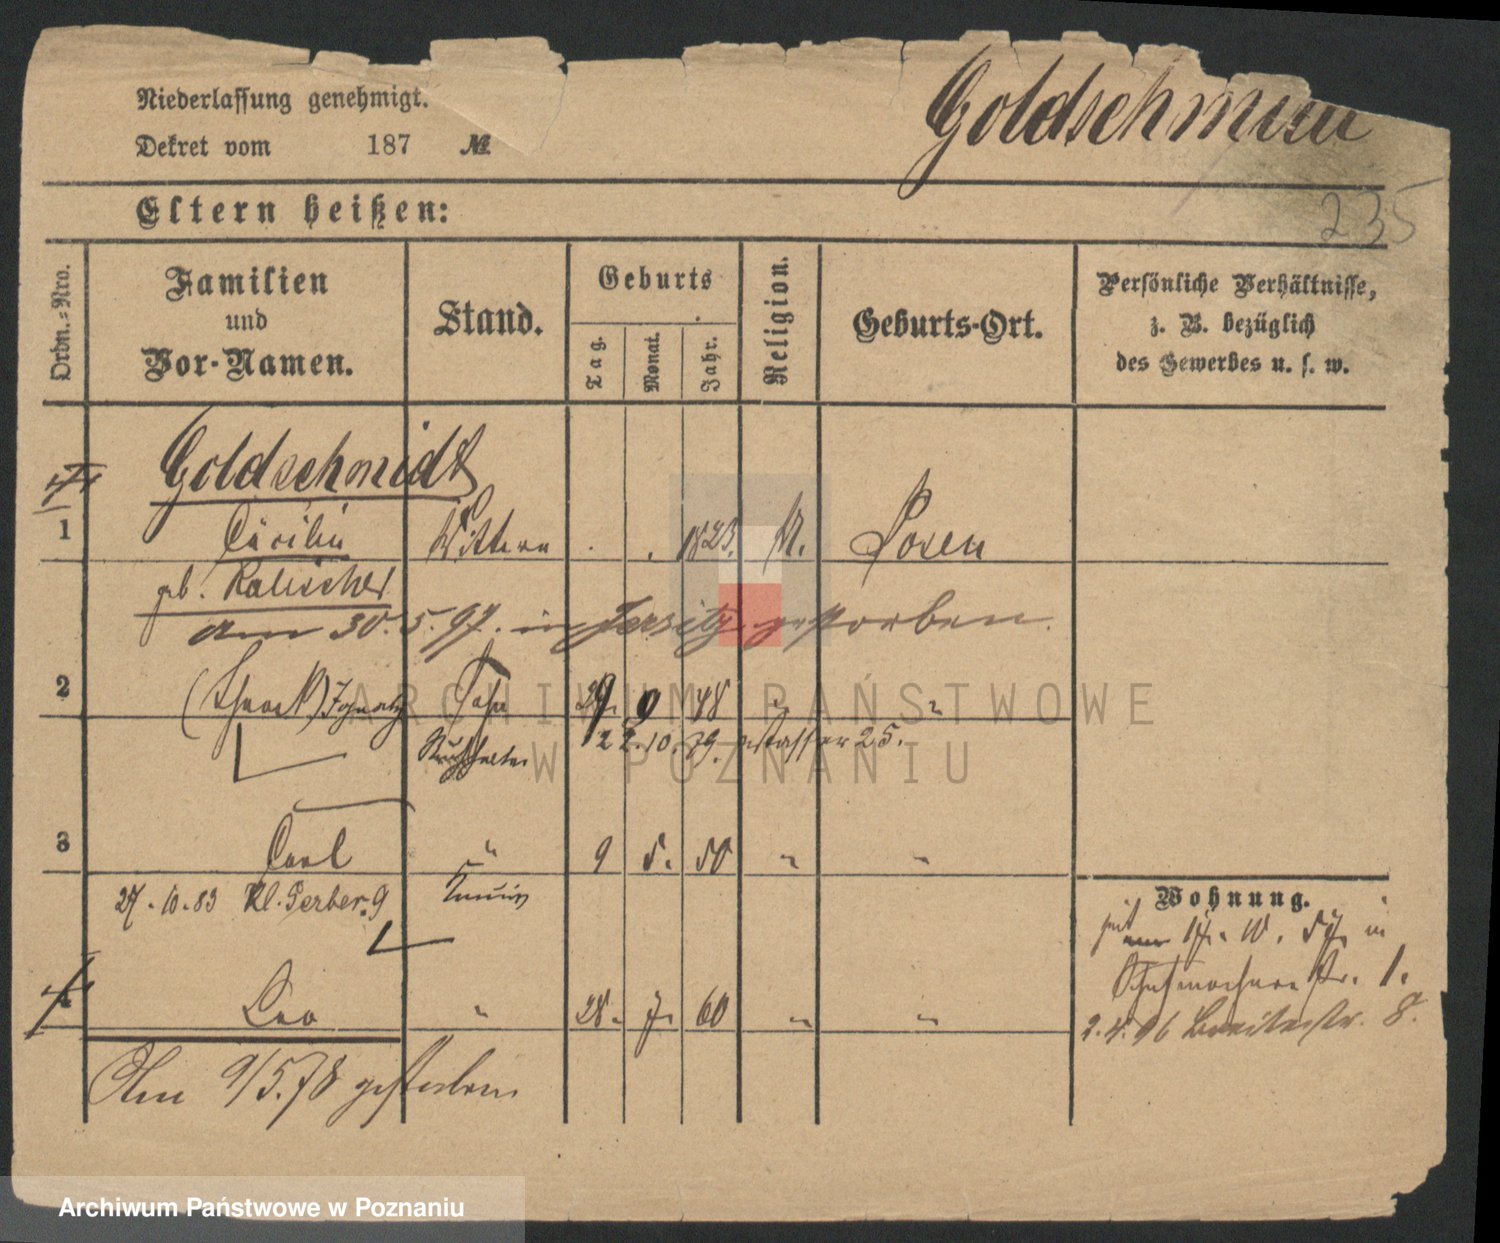 Niederlassung genehmigt.
Dekret vom 187 №
Goldschmidt
235
Eltern heißen:
Ordn.-Nro.
Familien
und
Vor-Namen.
Stand.
Geburts
Tag.
Monat.
Jahr.
Religion.
Geburts-Ort.
Persönliche Verhältnisse,
z. B. bezüglich
des Gewerbes u. s. w.
Goldschmidt
1 Cäcilie 1823. M. Posen
geb. Kalischer
am 30.5.97. in Jersitz gestorben.
2 Ignatz 29. 9 48 " "
22.10.79. 25.
3 Carl " 9 5. 50 " "
27.10.83 Kl. Gerber. 9
Wohnung.
seit 17. 10. 57. in
Schuhmacherstr. 1.
2.4.96 Breitestr. 8.
4 Leo " 28. 7. 60 " "
Am 9/5.78 gestorben
ARCHIWUM PAŃSTWOWE
W POZNANIU
Archiwum Państwowe w Poznaniu